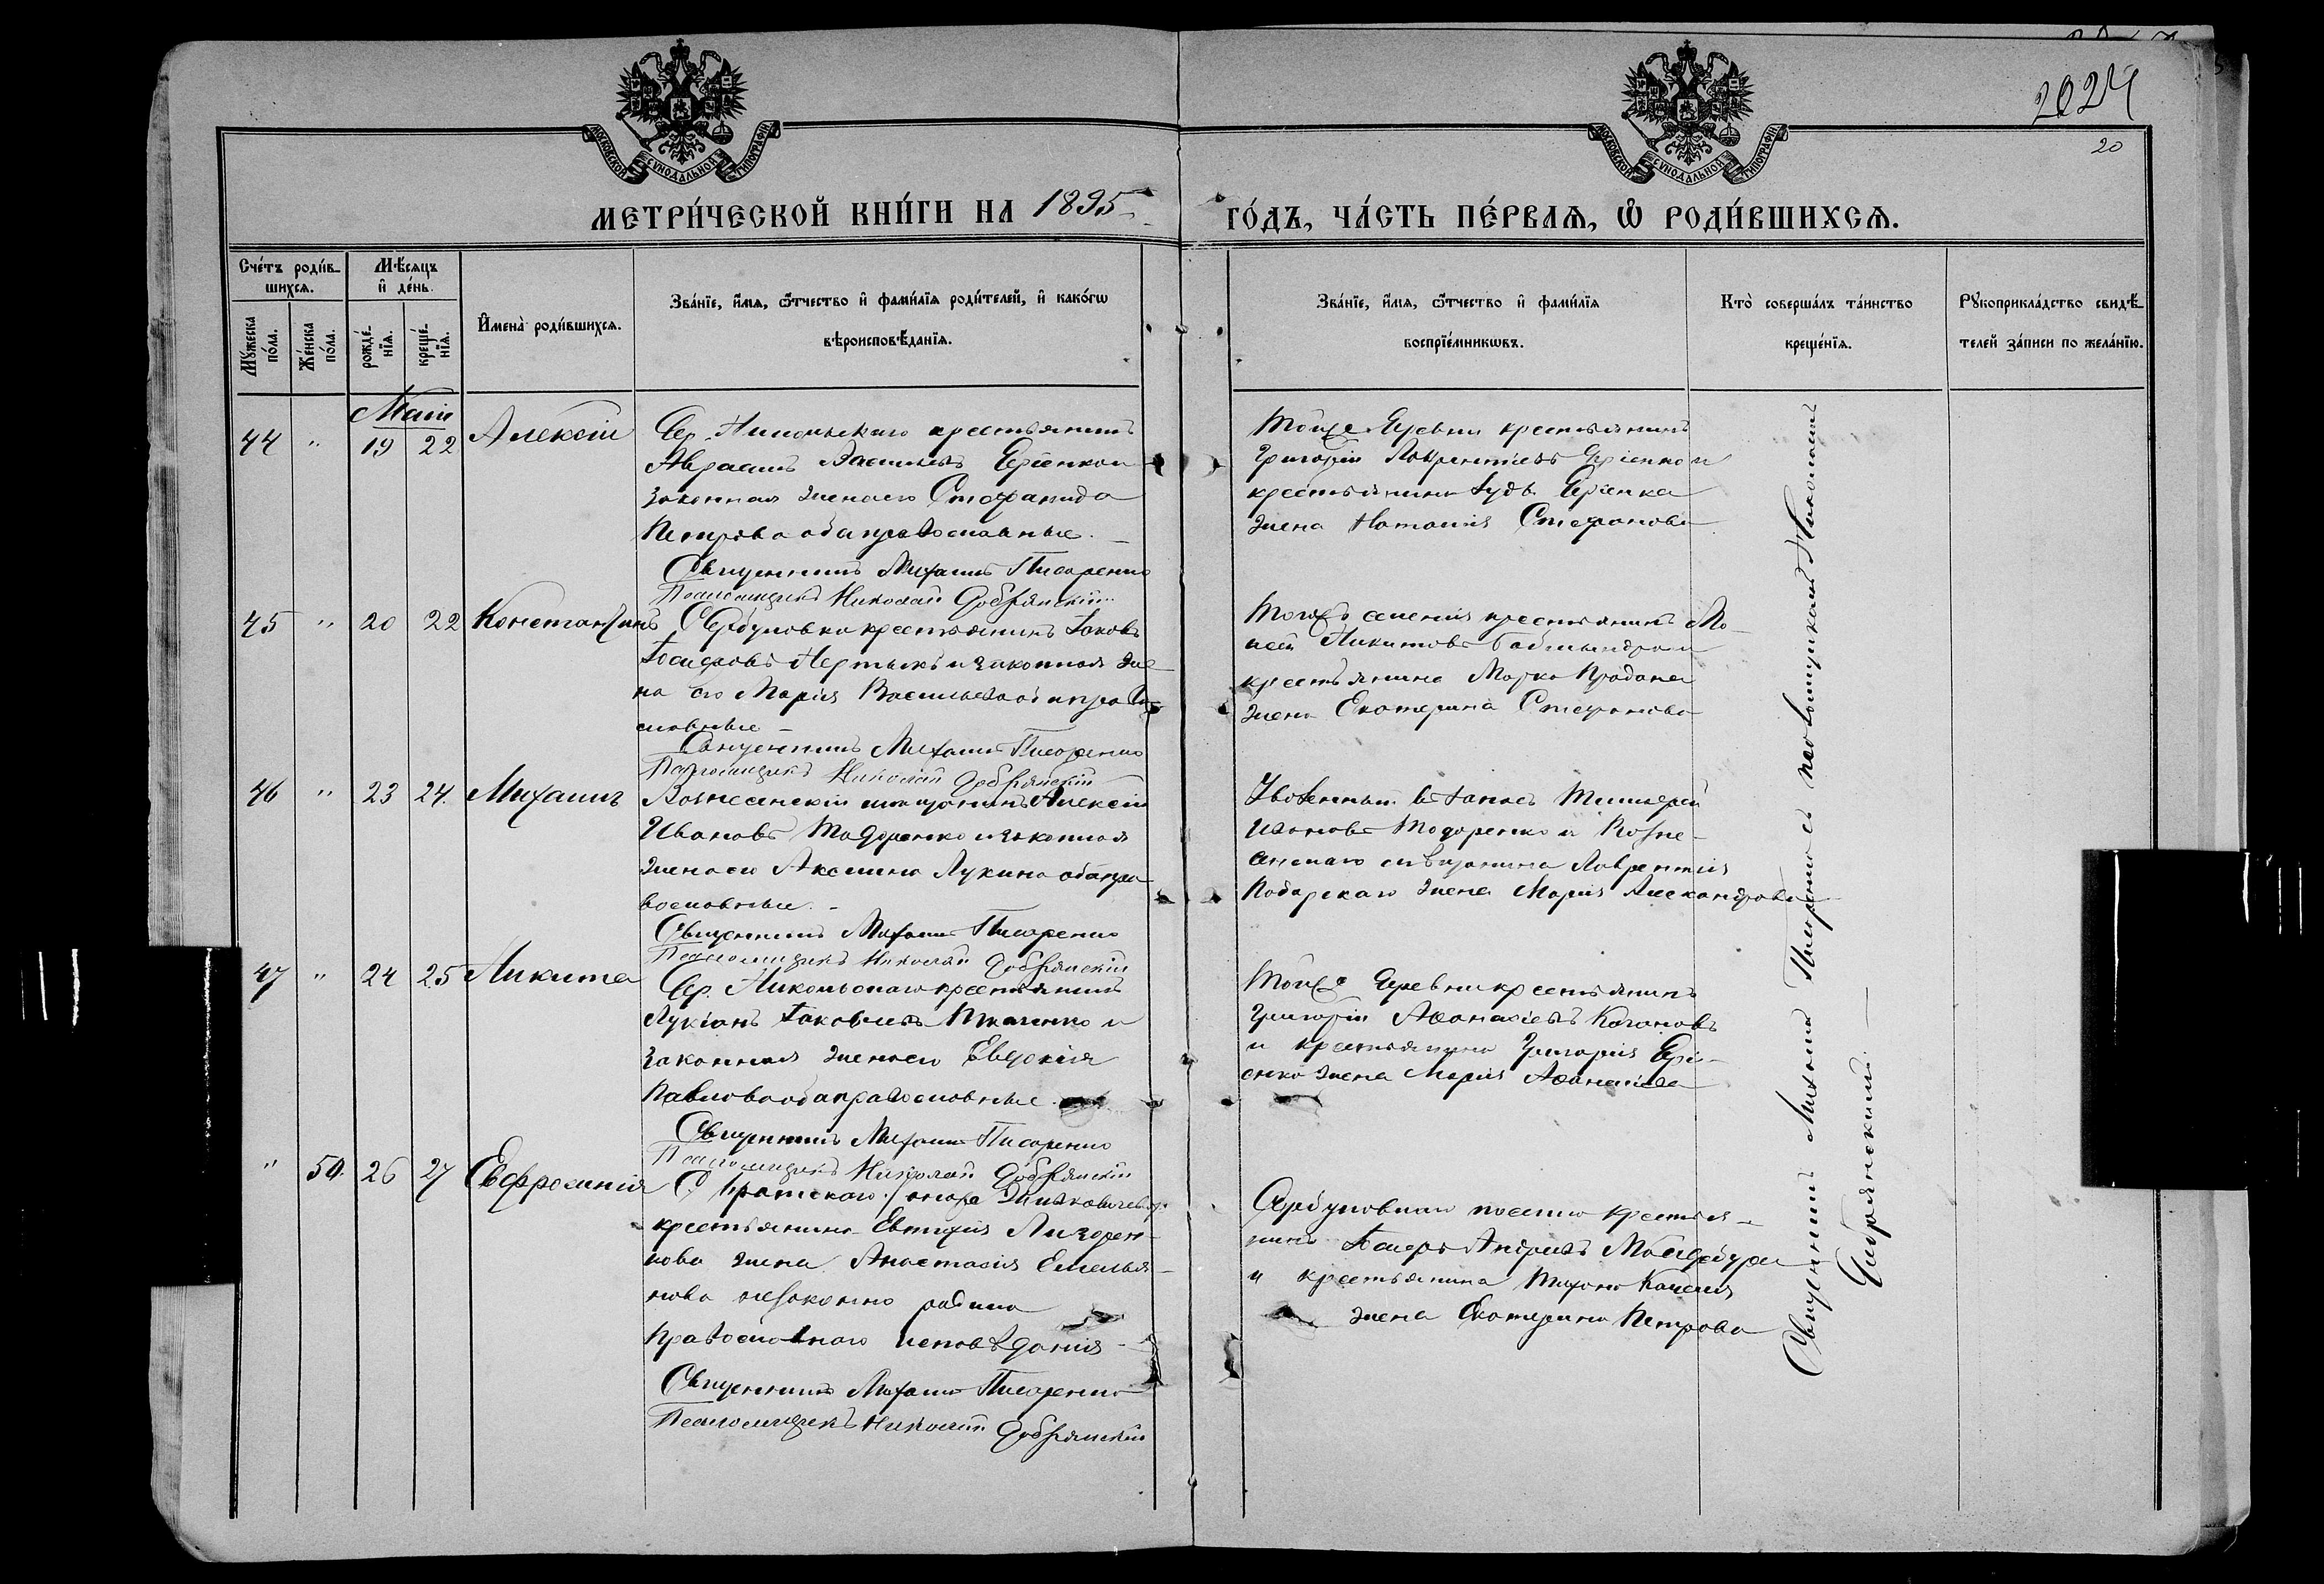 2024
20
МОСКОВСКОЙ СѴНОДАЛЬНОЙ ТИПОГРАФІИ
МОСКОВСКОЙ СѴНОДАЛЬНОЙ ТИПОГРАФІИ
МЕТРИ́ЧЕСКОЙ КНИ́ГИ НА 1895 ГО́ДЪ, ЧА́СТЬ ПЕ́РВАѦ, Ѡ РОДИ́ВШИХСѦ.
Сче́тъ роди́в-
шихсѧ.
Мꙋ́жеска по́ла.
Же́нска по́ла.
Мѣ́сѧцъ
и де́нь.
рожде́-
нїѧ.
креще́-
нїѧ.
И҆мена̀ роди́вшихсѧ.
Зва́нїе, и҆́мѧ, ѻ҆́тчество и҆ фами́лїѧ роди́телей, и҆ како́гѡ
вѣроисповѣ́данїѧ.
Зва́нїе, и҆́мѧ, ѻ҆́тчество и҆ фами́лїѧ
воспрїе́мникѡвъ.
Кто̀ соверша́лъ та́инство
креще́нїѧ.
Рꙋкоприкла́дство свидѣ́-
телей за́писи по жела́нїю.
Маій
44 " 19 22 Алексій
Дер. Никольскаго крестьянинъ
Авраамъ Васильевъ и
законная жена его Стефанида
Петрова оба православные.
Священникъ Михаилъ Писаренко
Псаломщикъ Николай Добрянскій
Тойже деревни крестьянинъ
Григорій Лаврентіевъ и
крестьянина
жена Наталія Стефанова
45 " 20 22 Константинъ
С. Сербуловки крестьянинъ Іаковъ
Іосифовъ и законная же-
на его Марія Васильева оба право-
славные
Священникъ Михаилъ Писаренко
Псаломщикъ Николай Добрянскій
Тогожъ селенія крестьянинъ Мо-
исей Никитовъ и
крестьянина Марка Продана
жена Екатерина Стефанова
46 " 23 24. Михаилъ
Вознесенскій мѣщанинъ Алексій
Ивановъ Тодоренко и законная
жена его Аксинія Лукина оба пра-
вославные.
Священникъ Михаилъ Писаренко
Псаломщикъ Николай Добрянскій
Уволенный въ запасъ Тимофей
Ивановъ Тодоренко и Возне-
сенскаго мѣщанина Лаврентія
жена Марія Александрова
47 " 24 25 Никита
Дер. Никольскаго крестьянинъ
Лукіанъ Іаковлевъ Ткаченко и
законная жена его Евдокія
Павлова оба православные.
Священникъ Михаилъ Писаренко
Псаломщикъ Николай Добрянскій
Тойже деревни крестьянинъ
Григорій Аѳанасіевъ
и крестьянина Григорія
жена Марія Аѳанасіева
" 50. 26 27 Евфросинія
С. Братскаго
крестьянина Евтихія
жена Анастасія Емелья-
нова незаконно родила
православнаго исповѣданія
Священникъ Михаилъ Писаренко
Псаломщикъ Николай Добрянскій
крестья-
нинъ Іосифъ Андреевъ
и крестьянина Тихона
жена Екатерина Петрова
Священникъ Михаилъ Писаренко съ псаломщикомъ Николаемъ
Добрянскимъ.